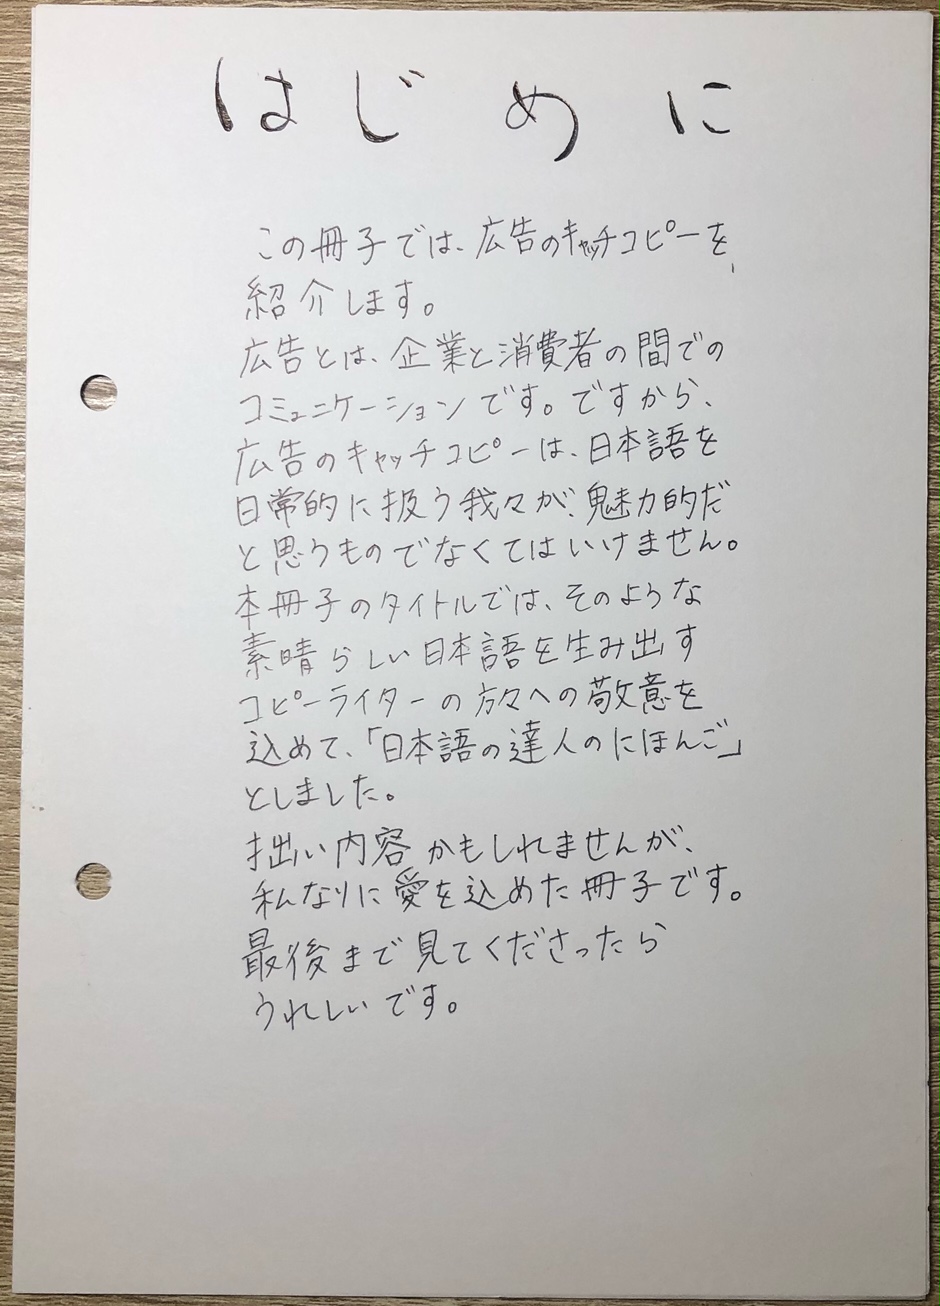 はじめに
この冊子では、広告のキャッチコピーを、
紹介します。
広告とは、企業と消費者の間での
コミュニケーションです。ですから、
広告のキャッチコピーは、日本語を
日常的に扱う我々が、魅力的だ
と思うものでなくてはいけません。
本冊子のタイトルでは、そのような
素晴らしい日本語を生み出す
コピーライターの方々への敬意を
込めて、「日本語の達人のにほんご」
としました。
拙い内容かもしれませんが、
私なりに愛を込めた冊子です。
最後まで見てくださったら
うれしいです。